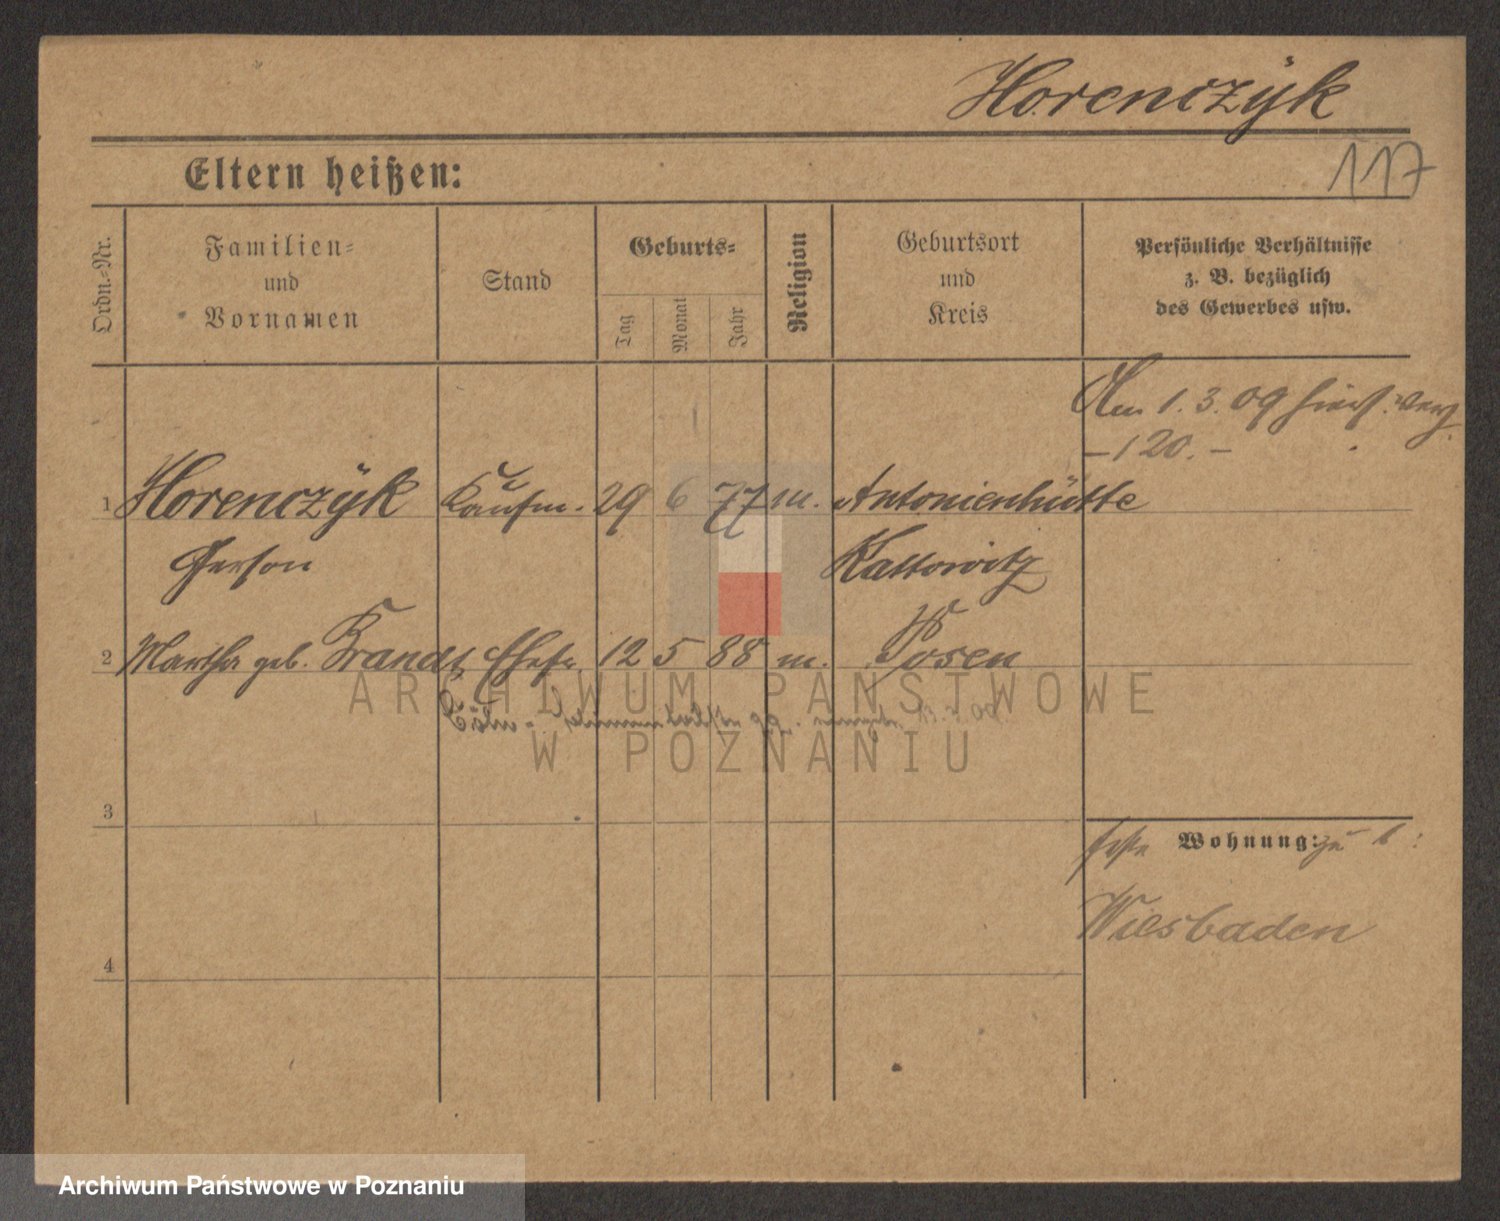 Horenczÿk
117
Eltern heißen:
Ordn.-Nr.
Familien-
und
Vornamen
Stand
Geburts-
Tag
Monat
Jahr
Religion
Geburtsort
und
Kreis
Persönliche Verhältnisse
z. B. bezüglich
des Gewerbes usw.
Am 1. 3. 09
–120.–
1 Horenczÿk Kaufm. 29 6 77 m. Antonienhütte
Gerson Kattowitz
2 Martha geb. Brandt Ehefr 12 5 88 m. Posen
3
Wohnung: zu 1:
Wiesbaden
4
ARCHIWUM PAŃSTWOWE
W POZNANIU
Archiwum Państwowe w Poznaniu